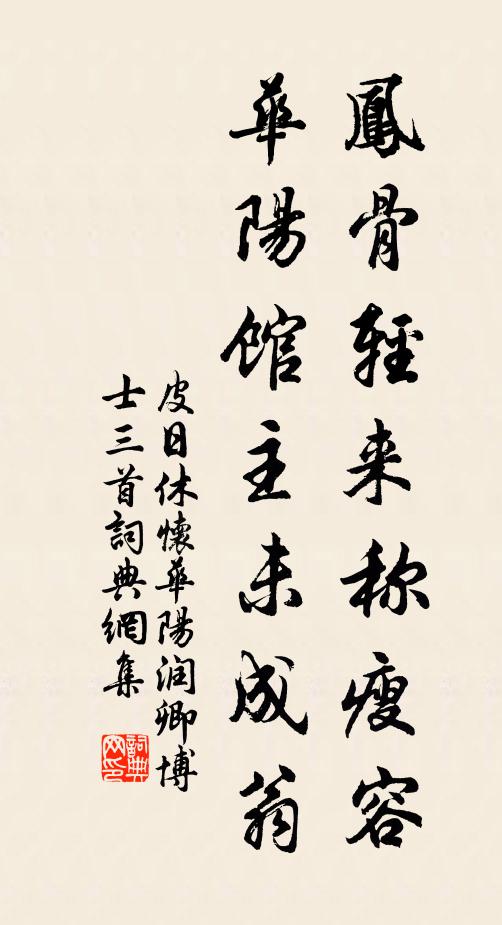 鳳骨輕来称瘦容
華陽館主未成翁
皮日休懷華陽润卿博
士三首詞典網集
詞典
网印